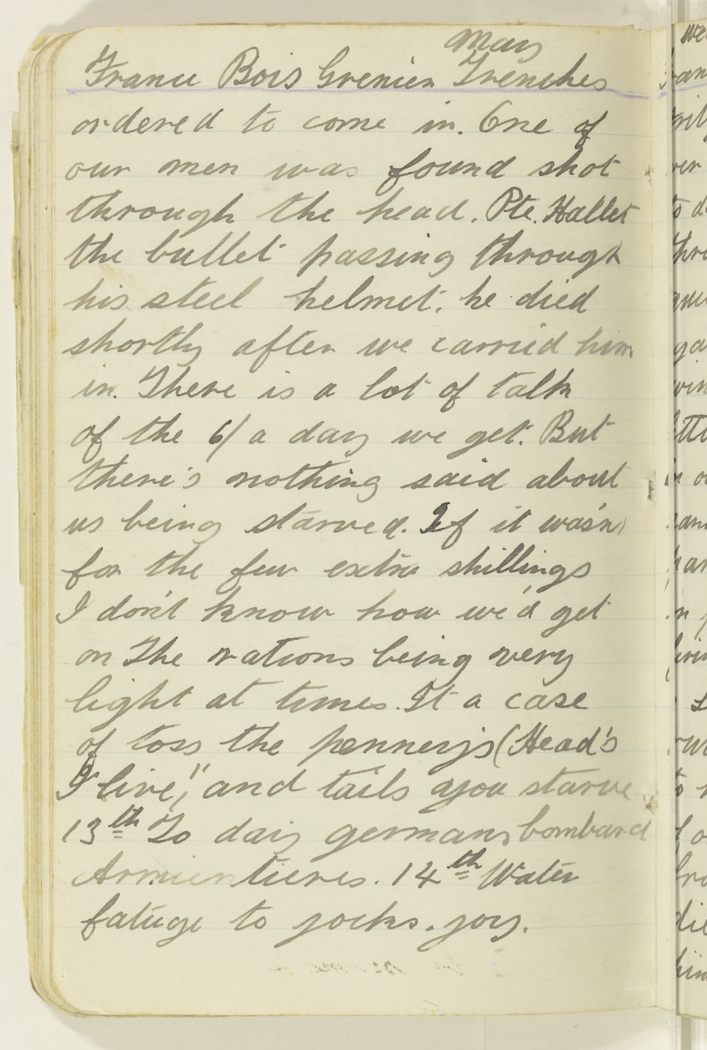 May
France Bois Grenier Trenches
ordered to come in. One of
our men was found shot
through the head. Pte. Hallet
the bullet passing through
his steel helmet. he died
shortly after we carried him
in. There is a lot of talk
of the 6/ a day we get. But
there's nothing said about
us being starved. If it wasn
for the few extra shillings
I don't know how we'd get
on The rations being very
light at times. It a case
of toss the penney's (Head's
I live," and tails you starve
13th To day germans bombard
Armientieres. 14th Water
fatuge to jocks. joy.